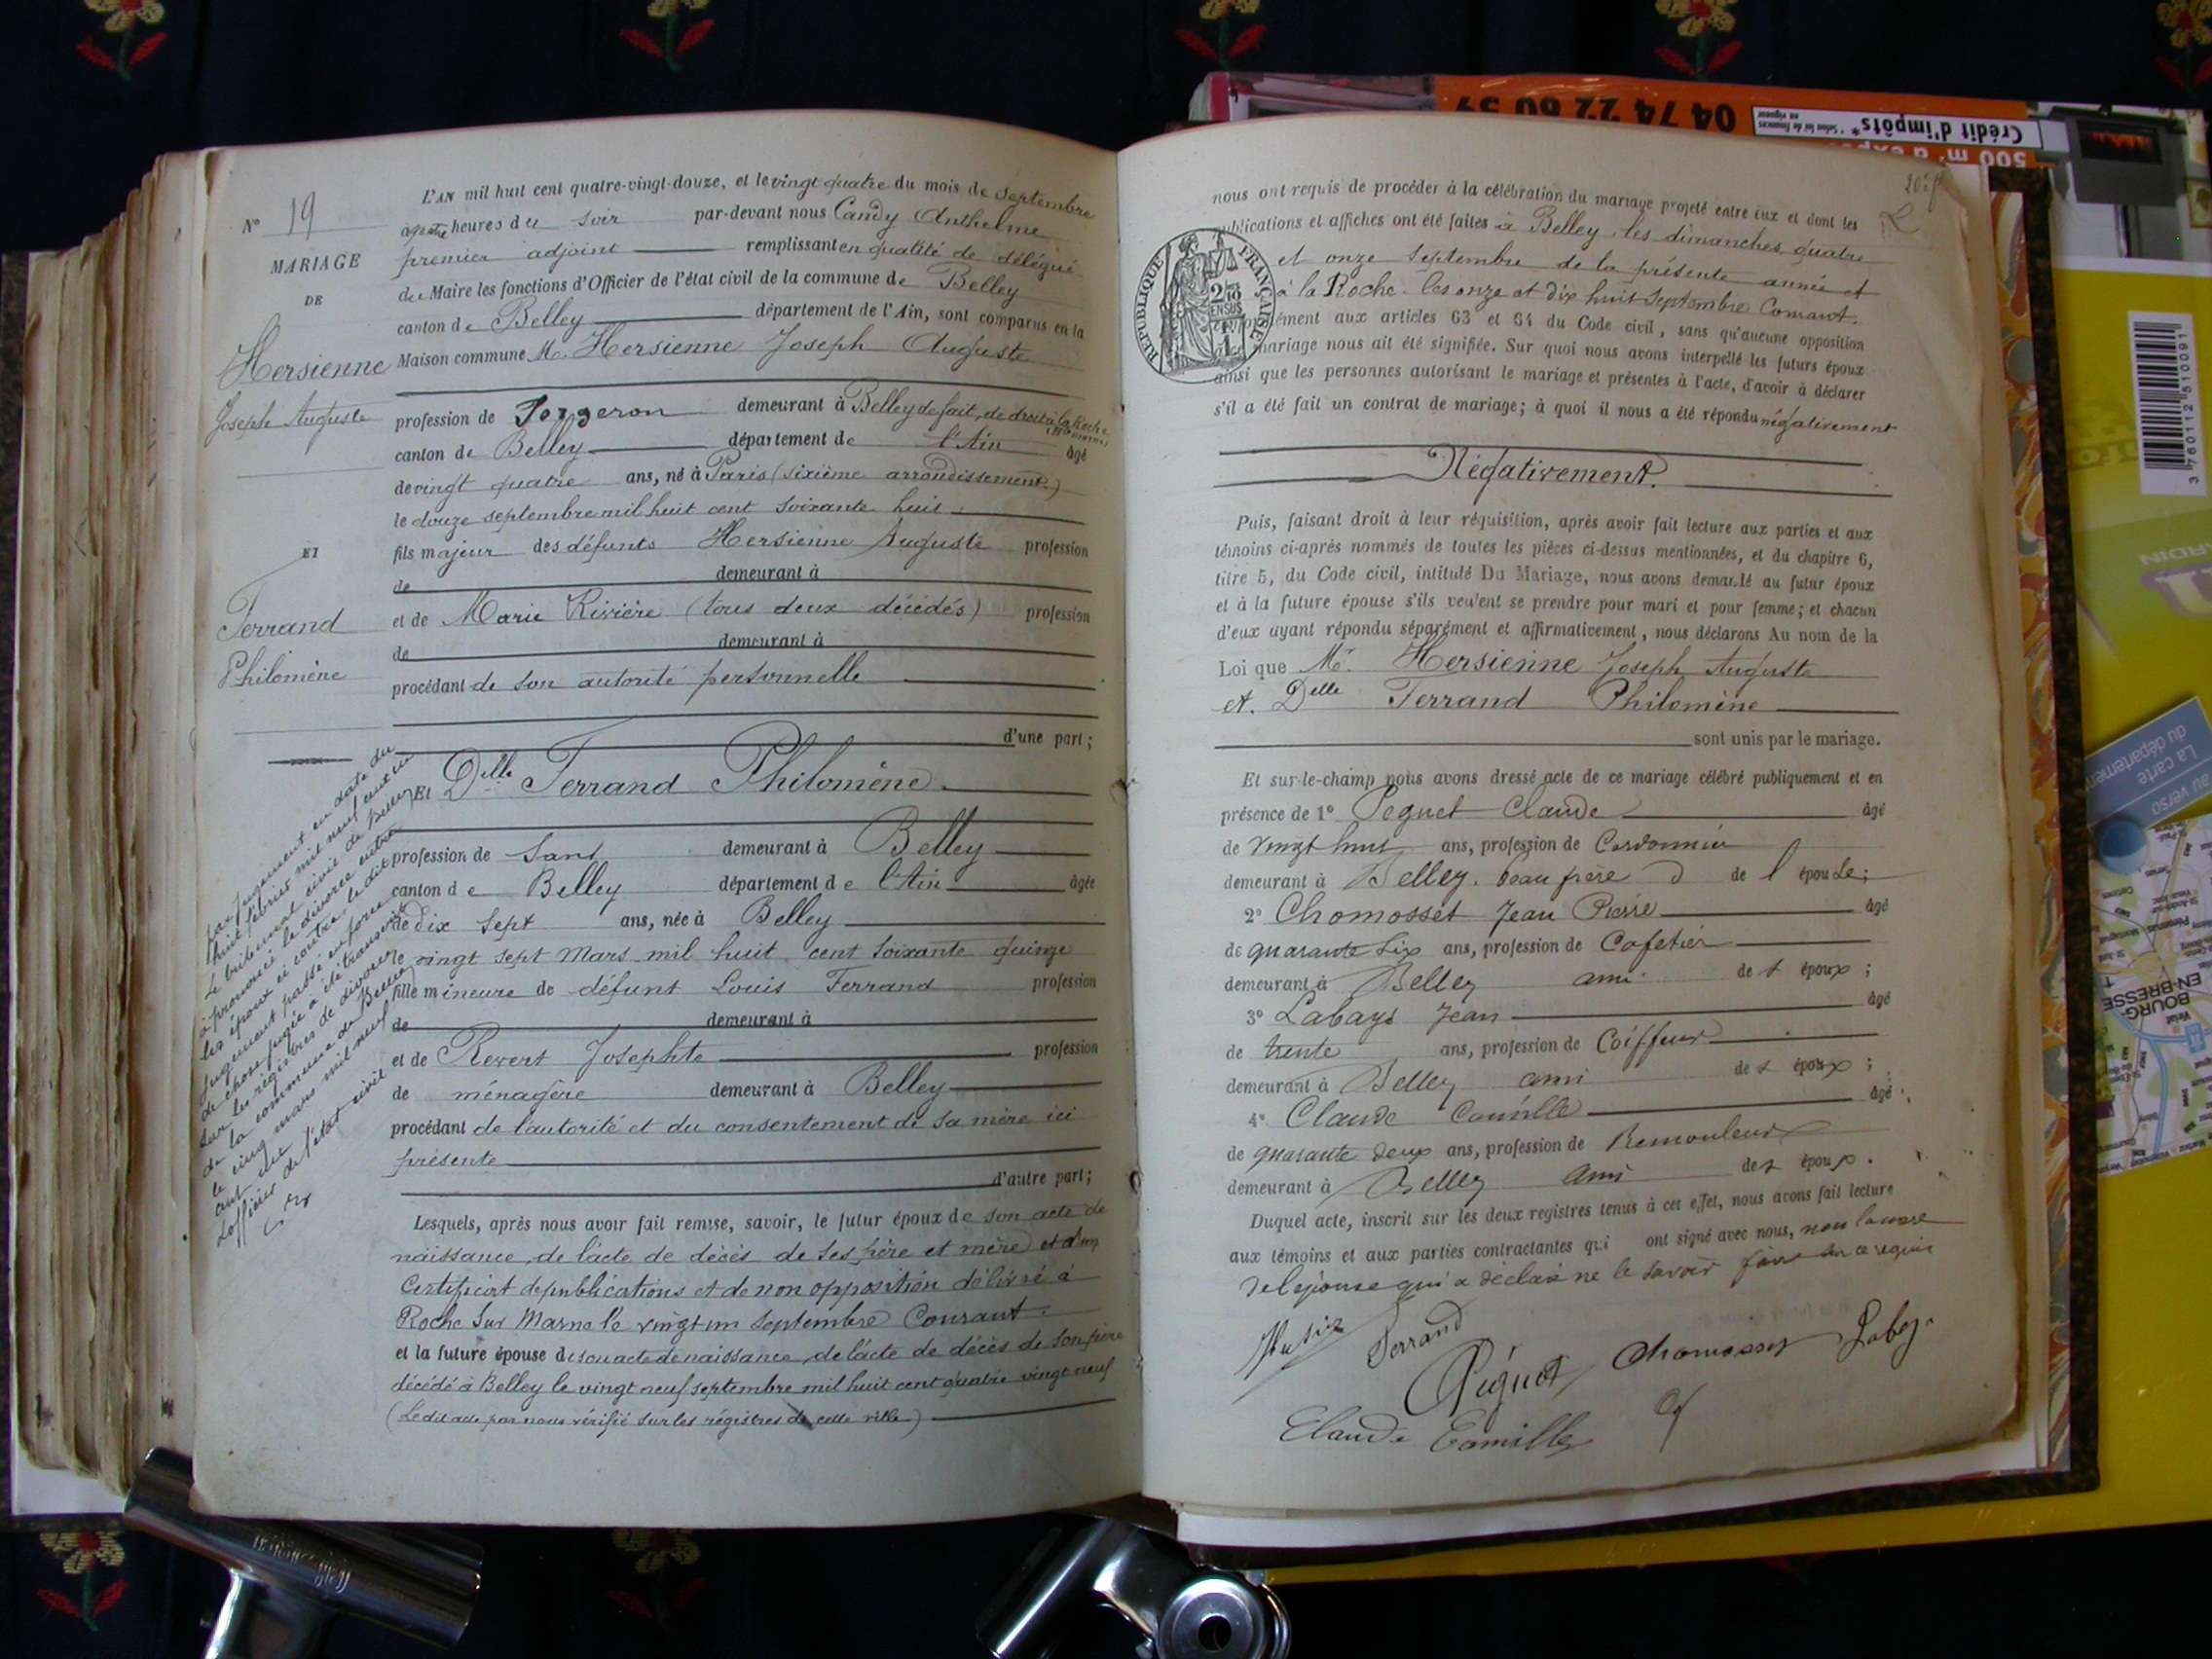 N° 19
MARIAGE
DE
Hersienne
Joseph Auguste
ET
Ferrand
Philomène
L'AN mil huit cent quatre-vingt-douze, et le vingt quatre du mois de septembre
à quatre heures du soir par-devant nous Candy Anthelme
premier adjoint remplissant en qualité de délégué
du Maire les fonctions d'Officier de l'état civil de la commune de Belley
canton de Belley département de l'Ain, sont comparus en la
Maison commune M. Hersienne Joseph Auguste
profession de Forgeron demeurant à Belley de fait, de droit à la Roche
canton de Belley département de l'Ain âgé
de vingt quatre ans, né à Paris (sixième arrondissement)
le douze septembre mil huit cent soixante huit
fils majeur des défunts Hersienne Auguste profession
de demeurant à
et de Marie Rivière (tous deux décédés) profession
de demeurant à
procédant de son autorité personnelle
d'une part;
Et Delle Ferrand Philomène
profession de Sans demeurant à Belley
canton de Belley département de l'Ain âgée
de dix sept ans, née à Belley
le vingt sept Mars mil huit cent soixante quinze
fille mineure de défunt Louis Ferrand profession
de demeurant à
et de Revert Josephte profession
de ménagère demeurant à Belley
procédant de l'autorité et du consentement de sa mère ici
présente
d'autre part;
Lesquels, après nous avoir fait remise, savoir, le futur époux de son acte de
naissance, de l'acte de décès de ses père et mère et d'un
Certificat de publications et de non opposition délivré à
Roche Sur Marne le vingt un septembre Courant.
et la future épouse de son acte de naissance, de l'acte de décès de son père
décédé à Belley le vingt neuf septembre mil huit cent quatre vingt neuf
(Ledit acte par nous vérifié sur les régistres de cette ville)
par jugement en date du
huit février mil neuf cent un
Le tribunal civil de Belley
à prononcé le divorce entre
les époux ci contre, le dit
jugement passé en force
de chose jugée a été transcrit
sur les registres de divorces
de la commune de Belley
le cinq mars mil neuf
cent un
L'officier de l'état civil
nous ont requis de procéder à la célébration du mariage projeté entre eux et dont les
publications et affiches ont été faites à Belley les dimanches quatre
et onze Septembre de la présente année et
à la Roche les onze et dix huit Septembre Courant.
conformément aux articles 63 et 64 du Code civil, sans qu'aucune opposition
mariage nous ait été signifiée. Sur quoi nous avons interpellé les futurs époux
ainsi que les personnes autorisant le mariage et présentes à l'acte, d'avoir à déclarer
s'il a été fait un contrat de mariage; à quoi il nous a été répondu négativement
Négativement.
RÉPUBLIQUE FRANÇAISE
Puis, faisant droit à leur réquisition, après avoir fait lecture aux parties et aux
témoins ci-après nommés de toutes les pièces ci-dessus mentionnées, et du chapitre 6,
titre 5, du Code civil, intitulé Du Mariage, nous avons demandé au futur époux
et à la future épouse s'ils veulent se prendre pour mari et pour femme; et chacun
d'eux ayant répondu séparément et affirmativement, nous déclarons Au nom de la
Loi que Mr. Hersienne Joseph Auguste
et Delle Ferrand Philomène
sont unis par le mariage.
Et sur-le-champ nous avons dressé acte de ce mariage célébré publiquement et en
présence de 1° Peguet Claude âgé
de Vingt huit ans, profession de Cordonnier
demeurant à Belley. beau frère de l'épouse;
2° Chomosset Jean Pierre âgé
de quarante six ans, profession de Cafetier
demeurant à Belley ami des époux;
3° Labays Jean âgé
de trente ans, profession de Coiffeur
demeurant à Belley ami des époux;
4° Claude Camille âgé
de quarante deux ans, profession de Remouleur
demeurant à Belley ami des époux.
Duquel acte, inscrit sur les deux registres tenus à cet effet, nous avons fait lecture
aux témoins et aux parties contractantes qui ont signé avec nous, non la mère
de l'épouse qui a déclaré ne le savoir faire de ce requise
Ferrand
Péguet
Chomosset
Labay
Claude Camille
04 74 22 60 59
Crédit d'impôts*
* Selon loi de finances
en vigueur
3 760112 610091
La carte
du département
au verso
BOURG-
EN-BRESSE